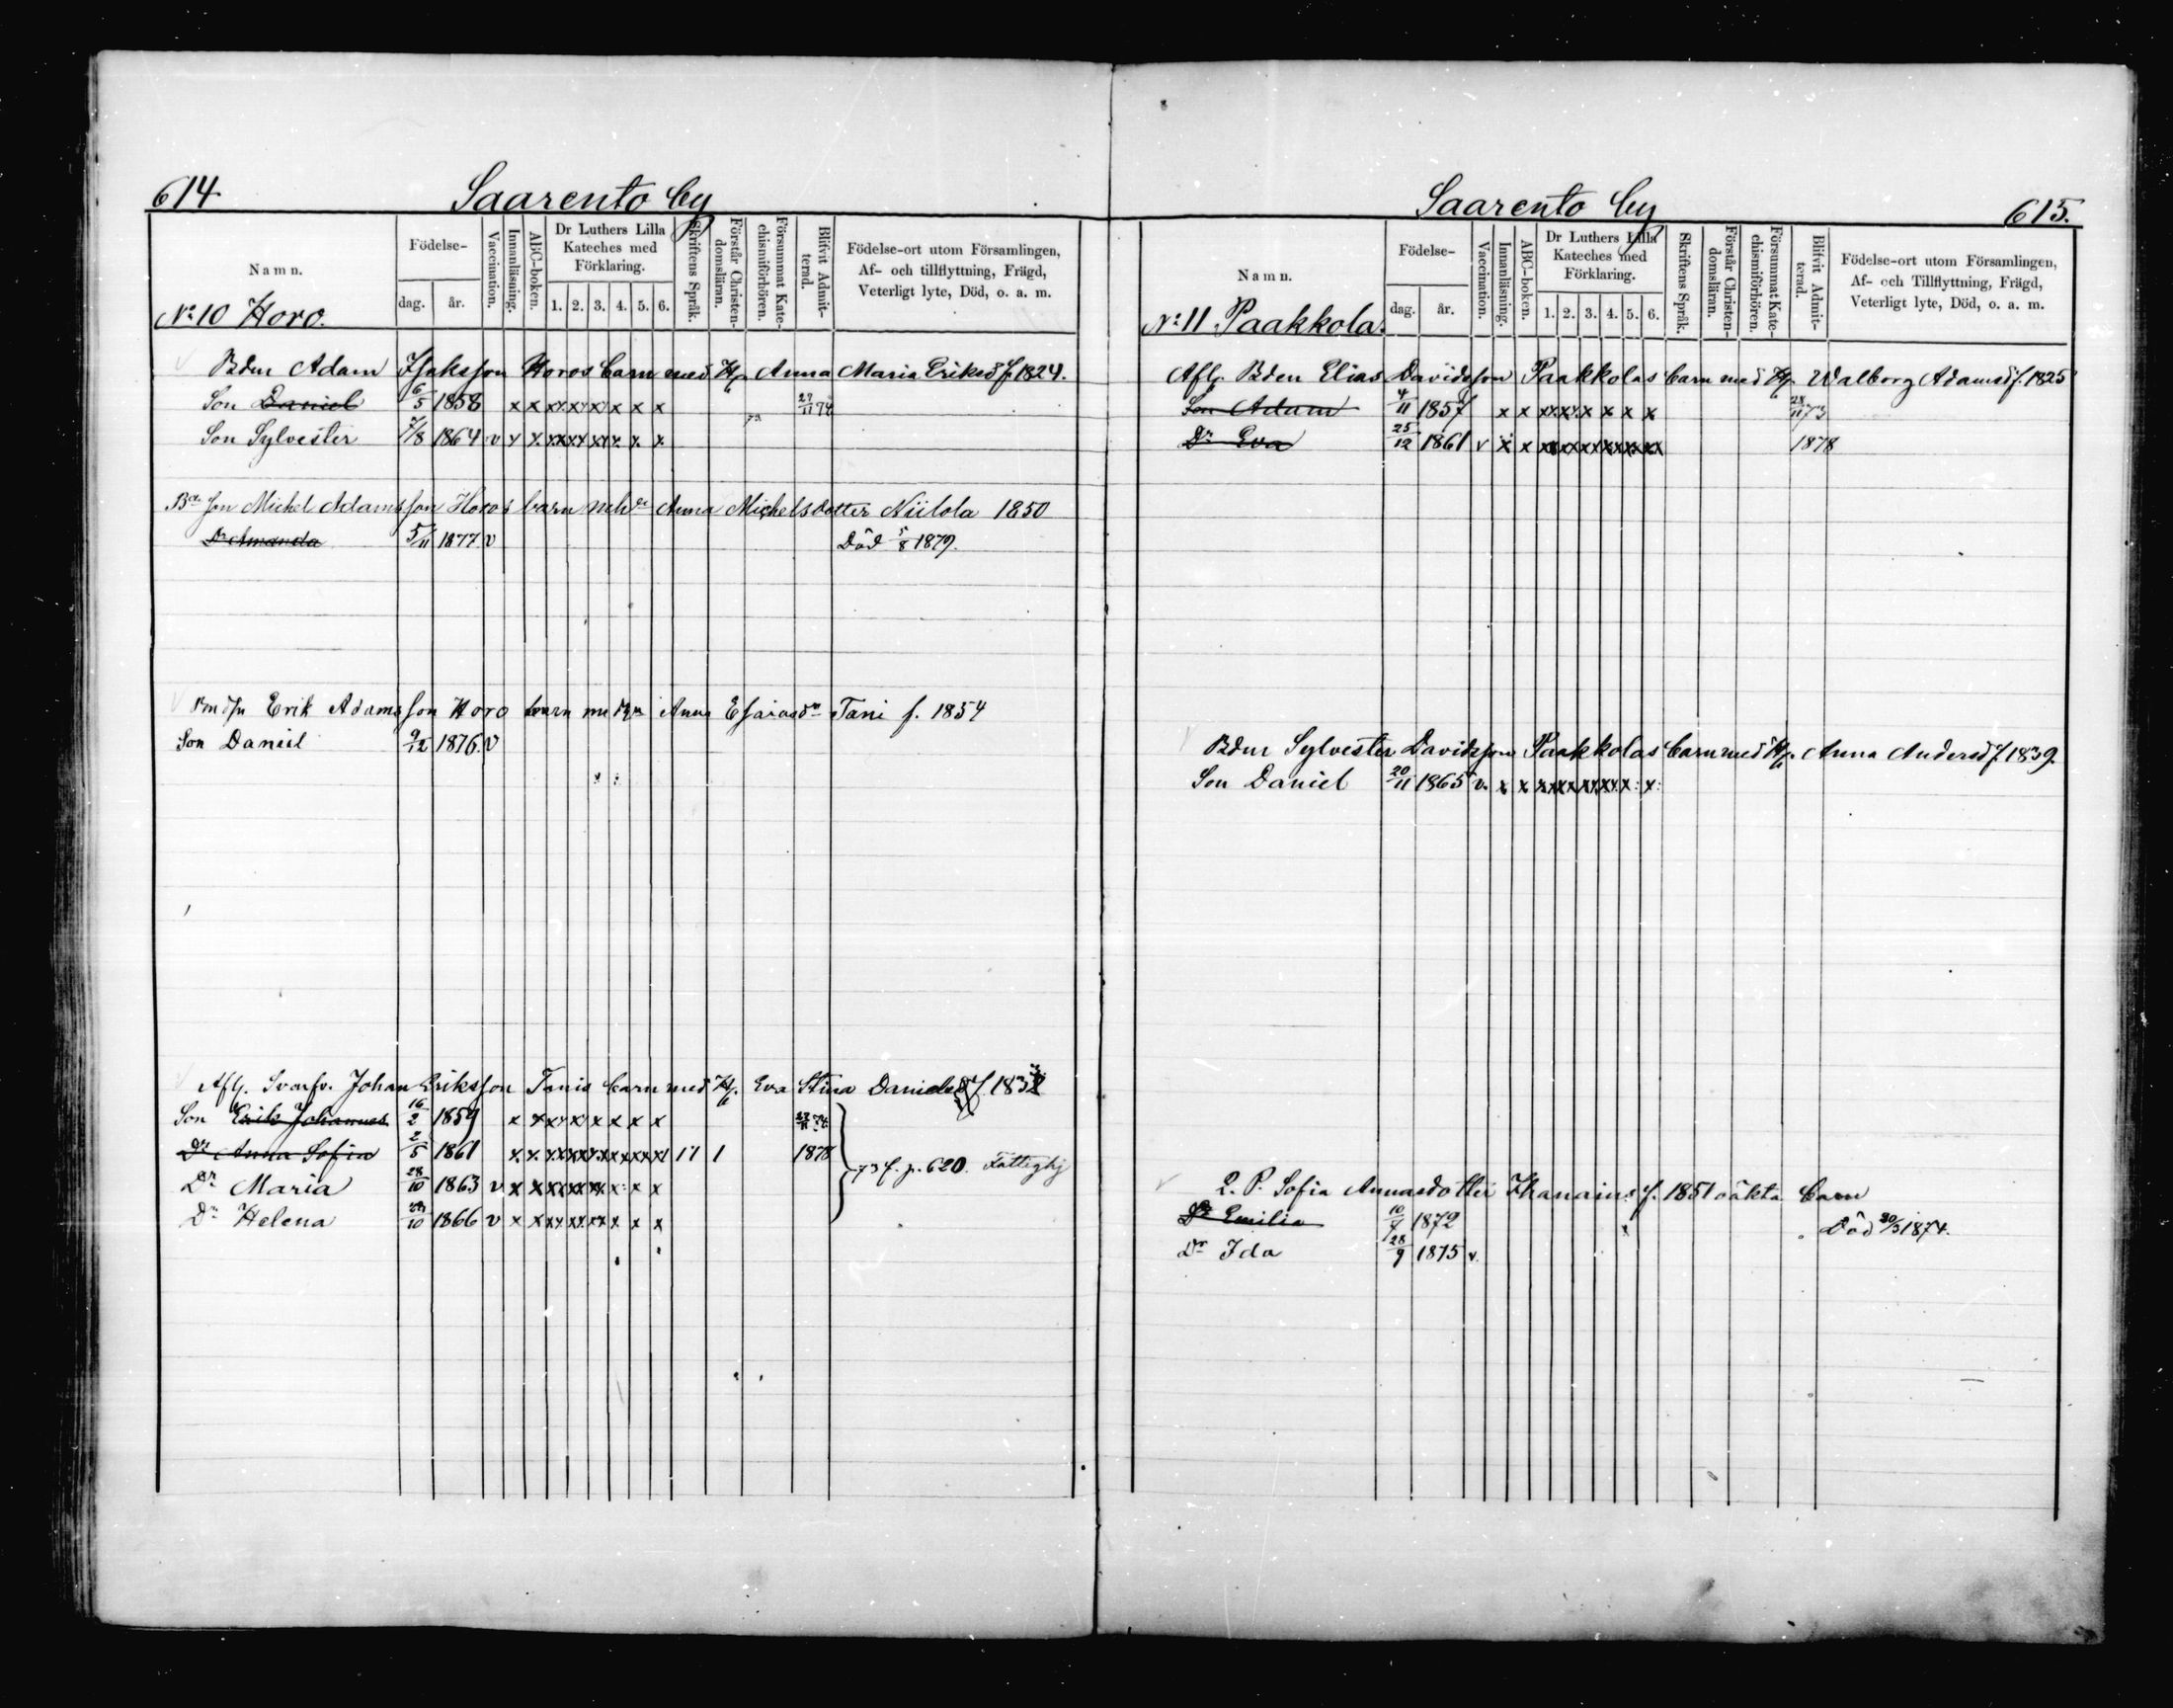 614.
Saarento by
Namn.
Födelse-
dag.
år.
Vaccination.
Innanläsning.
ABC-boken.
Dr Luthers Lilla Kateches med Förklaring.
1. 2. 3. 4. 5. 6.
Skriftens Språk.
Förstår Christen-domsläran.
Försummat Kate-chismiförhören.
Blifvit Admit-terad.
Födelse-ort utom Församlingen,
Af- och tillflyttning, Frägd,
Veterligt lyte, Död, o. a. m.
No 10 Horo.
Bden Adam Isaksson Horos barn med H. Anna Maria Eriksd f 1824.
Son Daniel 6/5 1858 x x x x x x x x x 27/11 74
Son Sylvester 7/8 1864 v x x x x x x x x
Bd son Michel Adamsson Horos barn med Anna Michelsdotter Niilola 1850
Dr Amanda 5/11 1877 v Död 5/8 1879.
Erik Adamsson Horo barn med Anna Esaiasdr Tani f. 1854
Son Daniel 9/12 1876. v
Afl. Johan Eriksson Tanis barn med H. Eva Stina Danielsd f. 183
Son Erik Johannes 16/2 1859 x x x x x x x x
Dr Anna Sofia 2/5 1861 x x x x x x x x 1878
Dr Maria 28/10 1863 v x x x x x x x x p. 620.
Dr Helena 1866 v x x x x x x x x
Saarento by
615.
Namn.
Födelse-
dag.
år.
Vaccination.
Innanläsning.
ABC-boken.
Dr Luthers Lilla Kateches med Förklaring.
1. 2. 3. 4. 5. 6.
Skriftens Språk.
Förstår Christen-domsläran.
Försummat Kate-chismiförhören.
Blifvit Admit-terad.
Födelse-ort utom Församlingen,
Af- och Tillflyttning, Frägd,
Veterligt lyte, Död, o. a. m.
No 11 Paakkola.
Afl. Bden Elias Davidsson Paakkolas barn med H. Walborg Adamsd f. 1825
Son Adam 4/11 1857 x x x x x x x x 28/11 73
Dr Eva 25/12 1861 v x x x x x x x x 1878
Bden Sylvester Davidsson Paakkolas barn med H. Anna Andersd f 1839.
Son Daniel 20/11 1865 v. x x x x x x x x
Q. P. Sofia Annasdotter f. 1851 oäkta barn
Dr Emilia 1872 Död 1874.
Dr Ida 28/9 1875 v.